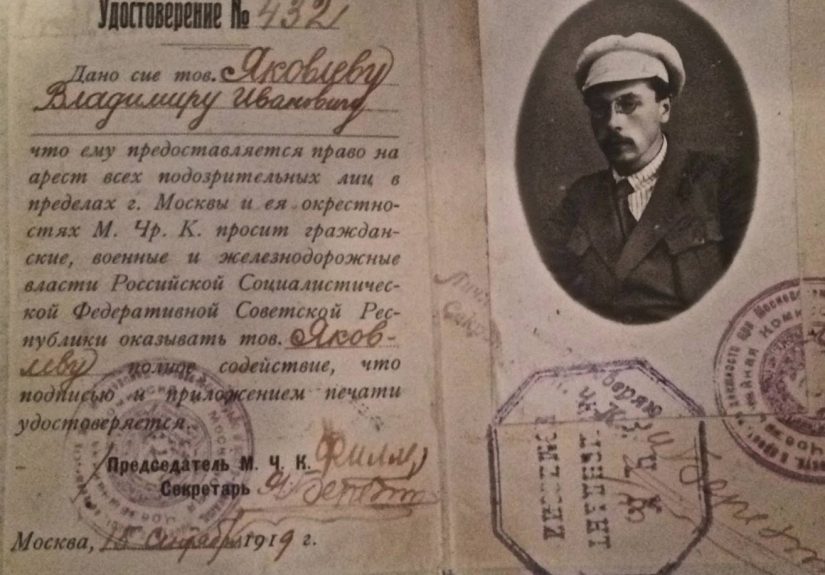 Удостоверение № 432
Дано сие тов. Яковлеву
Владимиру Ивановичу
что ему предоставляется право на
арест всех подозрительных лиц в
пределах г. Москвы и ея окрестно-
стях М. Чр. К. просит граждан-
ские, военные и железнодорожные
власти Российской Социалистичес-
кой Федеративной Советской Рес-
публики оказывать тов. Яков-
леву полное содействие, что
подписью и приложением печати
удостоверяется.
Председатель М. Ч. К.
Секретарь
Москва, 15 сентября 1919 г.